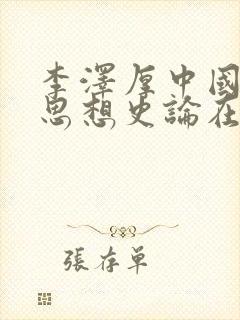 李澤厚中國
思想史論在
張存單